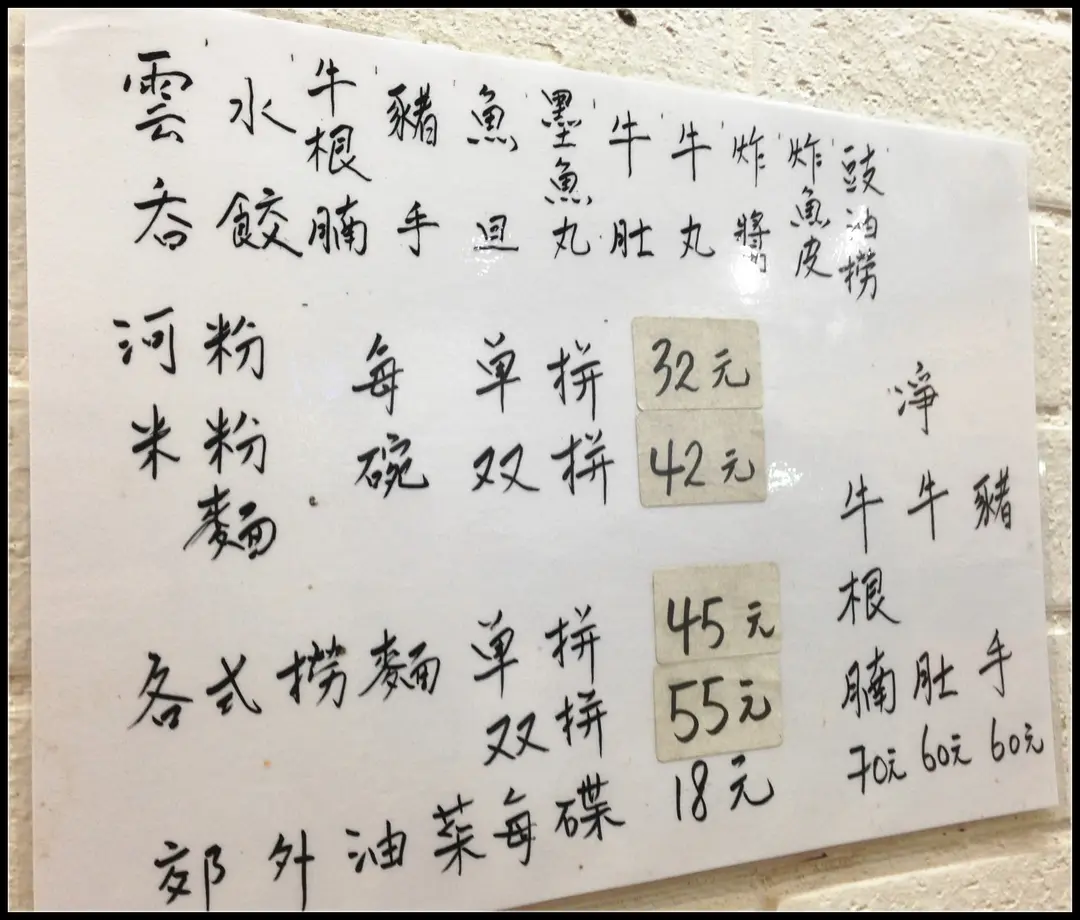 雲吞
水餃
牛根腩
豬手
魚旦
墨魚丸
牛肚
牛丸
炸醬
炸魚皮
豉油撈
河粉
米粉
麵
每碗
单拼 32元
双拼 42元
各式撈麵 单拼 45元
双拼 55元
郊外油菜每碟 18元
淨
牛根腩 70元
牛肚 60元
豬手 60元